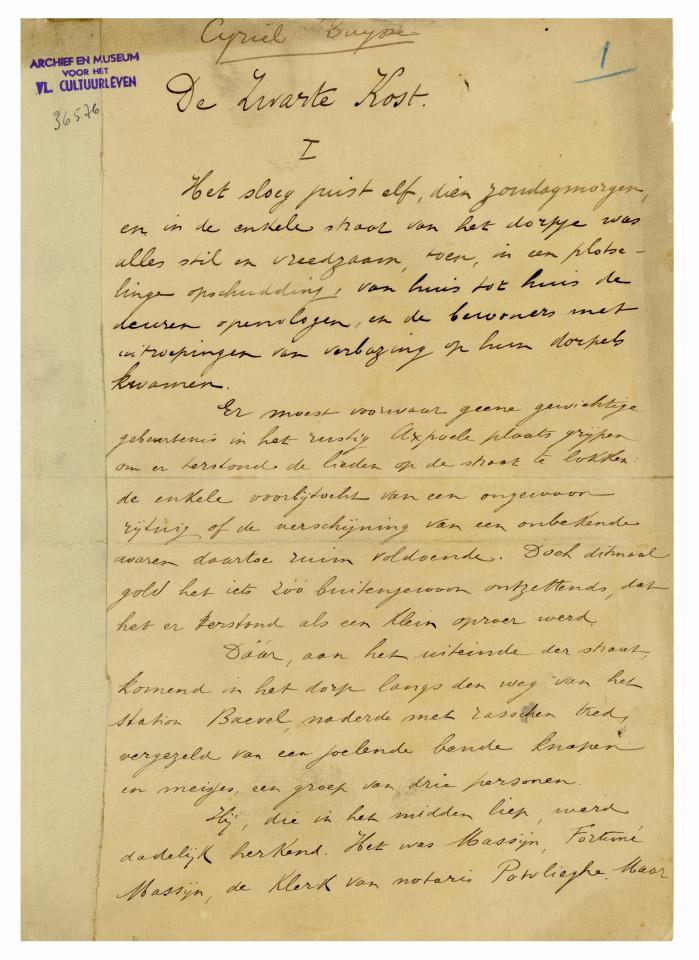 Cyriel Buysse
1
ARCHIEF EN MUSEUM
VOOR HET
VL. CULTUURLEVEN
36576
De Zwarte Kost.
I
Het sloeg juist elf, dien zondagmorgen,
en in de enkele straat van het dorpje was
alles stil en vreedzaam, toen, in een plotse-
linge opschudding, van huis tot huis de
deuren openvlogen, en de bewoners met
uitroepingen van verbazing op hun dorpels
kwamen.
Er moest voorwaar geene gewichtige
gebeurtenis in het rustig Axpoele plaats grijpen
om er terstond de lieden op de straat te lokken:
de enkele voorbijtocht van een ongewoon
rijtuig of de verschijning van een onbekende
waren daartoe ruim voldoende. Doch ditmaal
gold het iets zóó buitengewoon ontzettends, dat
het er terstond als een klein oproer werd.
Dáár, aan het uiteinde der straat,
komend in het dorp langs den weg van het
station Baevel, naderde met rasschen tred,
vergezeld van een joelende bende knapen
en meisjes, een groep van drie personen.
Hij, die in het midden liep, werd
dadelijk herkend. Het was Massijn, Fortuné
Massijn, de klerk van notaris Potvlieghe. Maar